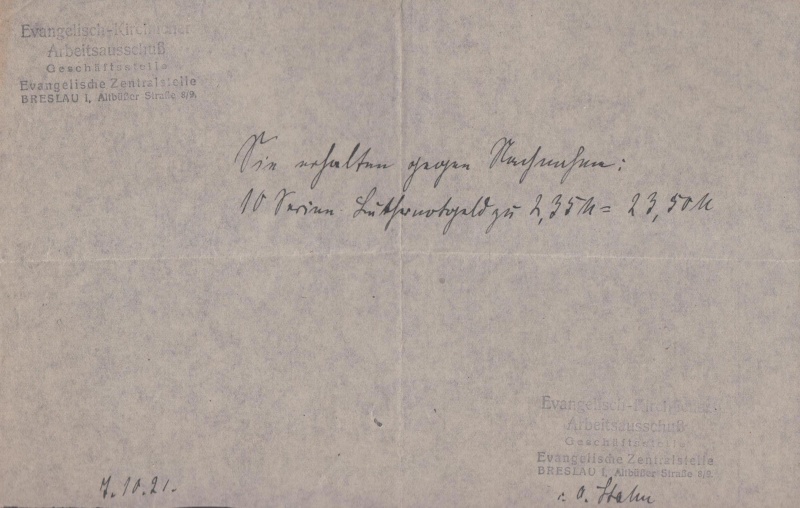 Evangelisch-Kirchlicher
Arbeitsausschuß
Geschäftsstelle
Evangelische Zentralstelle
BRESLAU I, Altbüßer Straße 8/9.
Sie erhalten gegen Nachnahme:
10 Serien Luthernotgeld zu 2,35 M = 23,50 M
Evangelisch-Kirchlicher
Arbeitsausschuß
Geschäftsstelle
Evangelische Zentralstelle
BRESLAU I, Altbüßer Straße 8/9.
7.10.21.